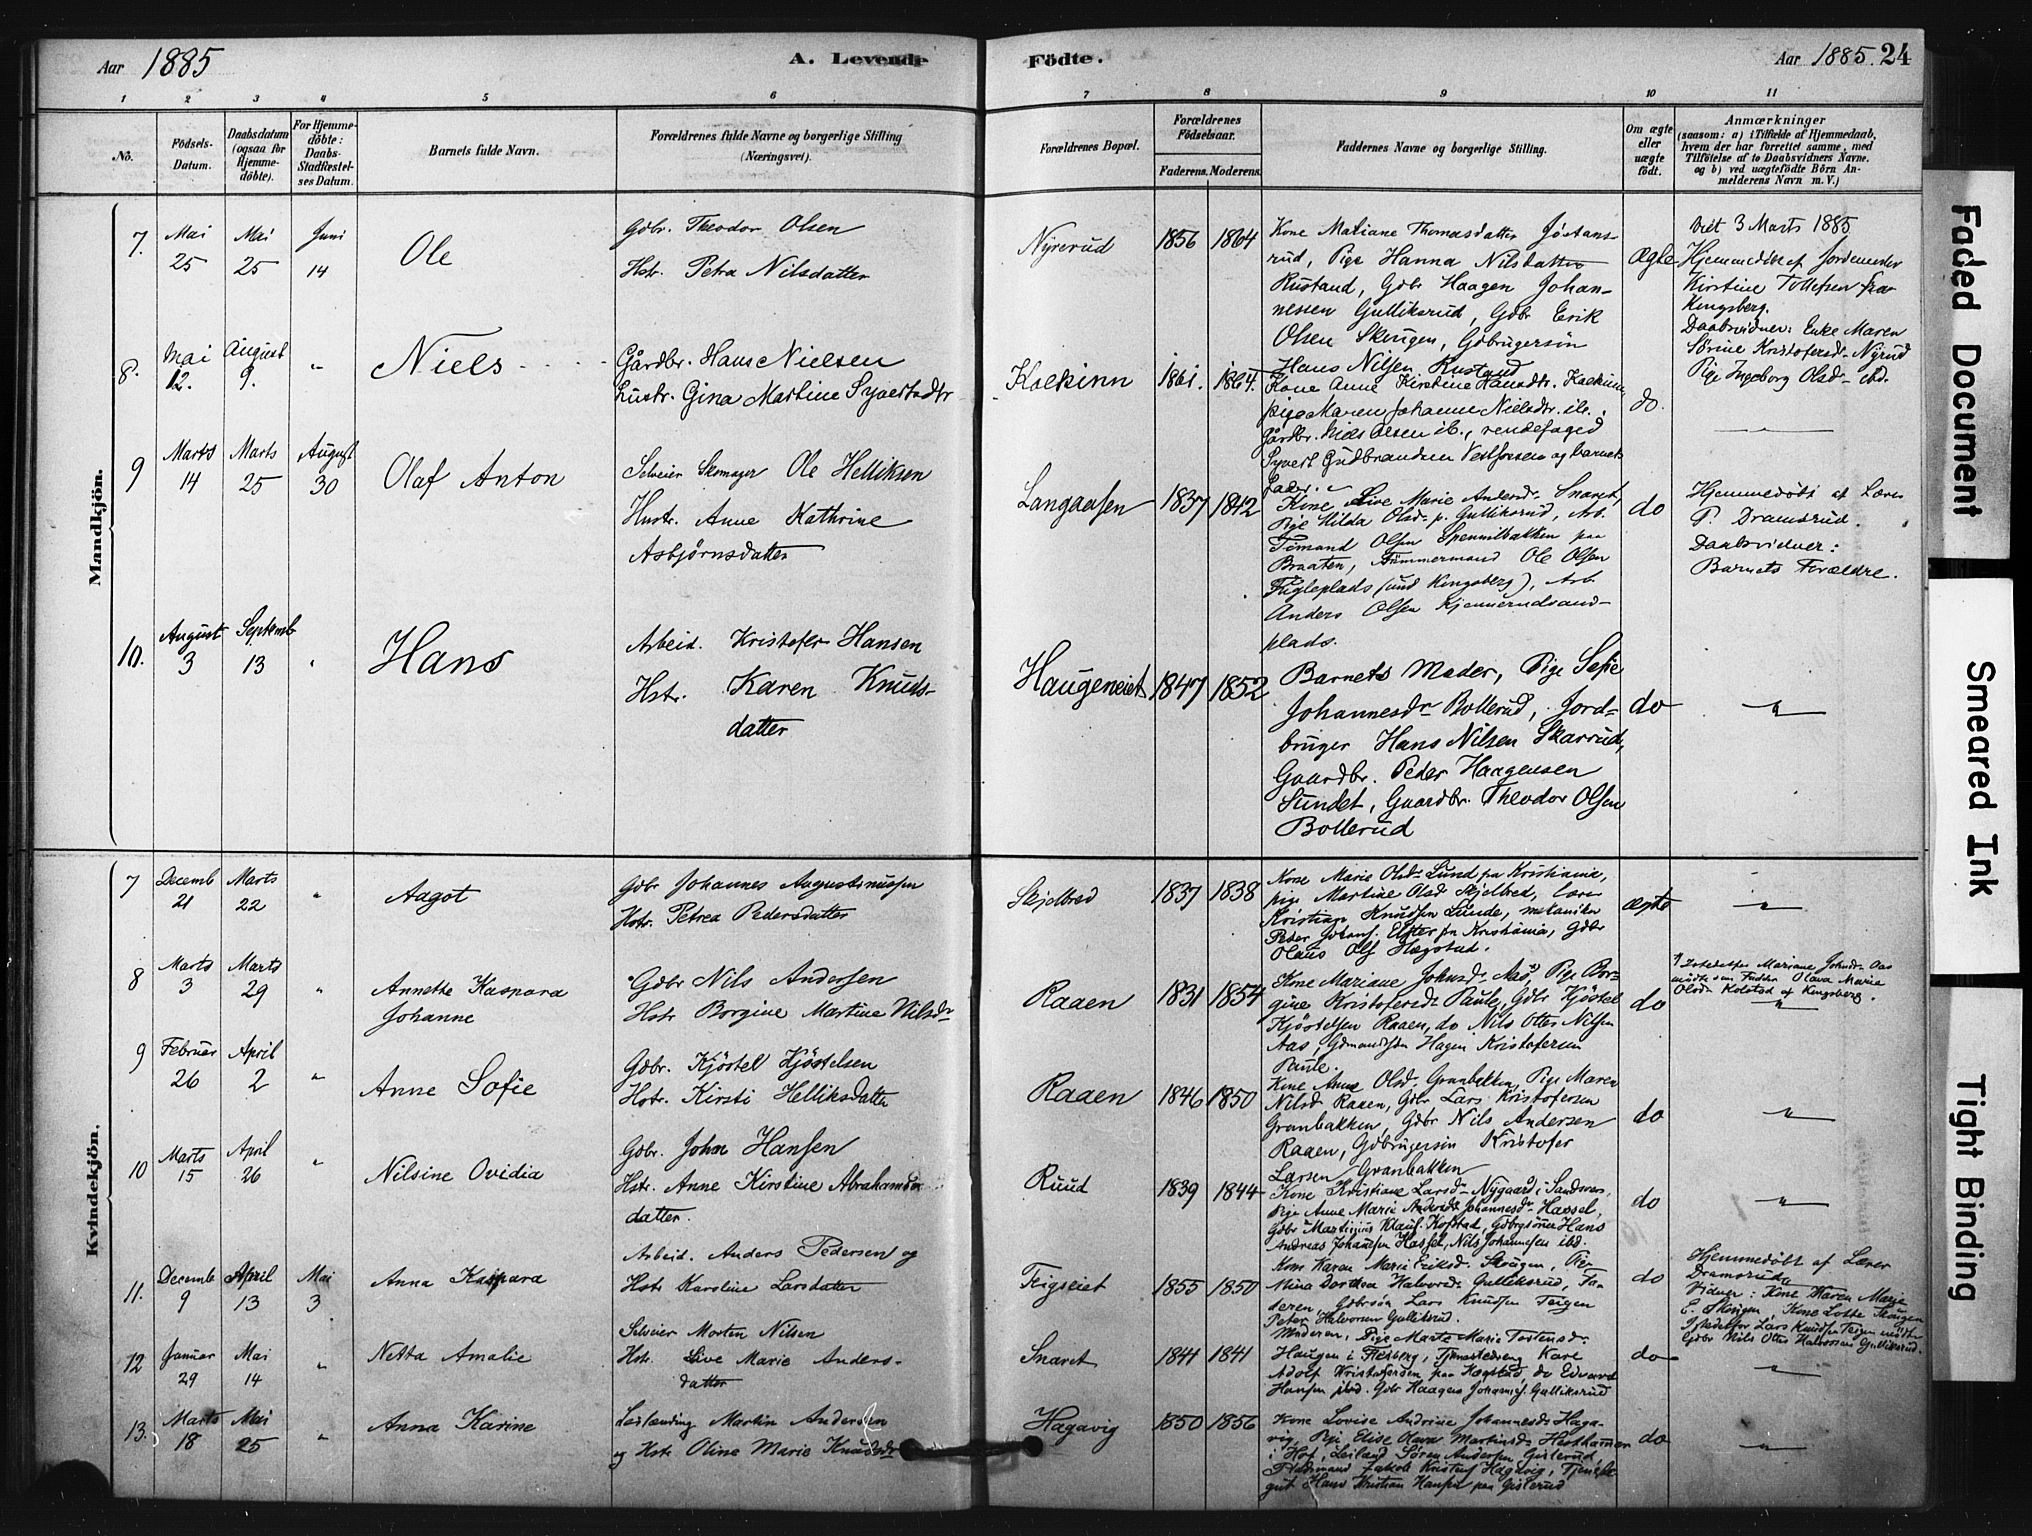 Aar 1885
A. Levende
Födte.
Aar 1885. 24
1 2 3 4 5 6 7 8 9 10 11
No.
Födsels-
Datum.
Daabsdatum
(ogsaa for
Hjemme-
döbte).
For Hjemme-
döbte:
Daabs-
Stadfæstel-
ses Datum.
Barnets fulde Navn.
Forældrenes fulde Navne og borgerlige Stilling
(Næringsvei).
Forældrenes Bopæl.
Forældrenes
Födselsaar.
Faderens. Moderens.
Faddernes Navne og borgerlige Stilling.
Om ægte
eller
uægte
födt.
Anmærkninger
(saasom: a) i Tilfælde af Hjemmedaab,
hvem der har forrettet samme, med
Tilföielse af to Daabsvidners Navne.
og b) ved uægtefödte Börn An-
melderens Navn m. V.)
Mandkjön.
7. Mai 25 Mai 25 Juni 14
Ole
Gdbr. Theodor Olsen
Hstr. Petra Nilsdatter
Nyrerud
1856 1864
Kone Matiane Thomasdatter Jøstans-
rud, Pige Hanna Nilsdatter
Rustand, Gdbr Haagen Johan-
nessen Gulliksrud, Gdbr Erik
Olsen Skeugen, Gdbrugersön
Hans Nilsen Rustand
Ægte
Viet 3 Marts 1885
Hjemmedöbt af Jordemoder
Kirstine Tollefsen fra
Kongsberg.
Daabsvidner: Enke Maren
Sørine Kristofersd. Nyrud
Pige Ingeborg Olsd. ibd.
8. Mai 12. August 9. "
Niels
Gårdbr. Hans Nielsen
Hustr. Gina Martine Syverstadtr
Kolkinn
1861. 1864.
Kone Anne Kirstine Hansdtr. Kolkinn
pige Maren Johanne Nielsdtr. ib.
Gårdbr. Niels Olsen ib.,
Syvert Gudbrandsen Vestfossen og barnets
fader.
do.
9 Marts 14 Marts 25 August 30
Olaf Anton
Selveier Skomager Ole Helliksen
Hustr. Anne Kathrine
Asbjørnsdatter
Langaasen
1837 1842
Kone Live Marie Andersd. Snaret,
Pige Hilda Olsd. p. Gulliksrud, Arb.
Tømand Olsen paa
Braaten, Tømmermand Ole Olsen
Fugleplads (und Kongsberg), Arb.
Anders Olsen Kjennerudsand-
plads.
do
Hjemmedøbt af Lærer
P. Dramsrud.
Daabsvidner:
Barnets Forældre.
10. August 3 Septemb 13 "
Hans
Arbeid. Kristofer Hansen
Hstr. Karen Knuds-
datter
Haugeneiet
1847 1852
Barnets Moder, Pige Sofie
Johannesdr Bollerud, Jord-
bruger Hans Nilsen Skarrud,
Gaardbr. Peder Haagensen
Sundet, Gaardbr. Theodor Olsen
Bollerud
do
"
Kvindekjön.
7 Decemb 21 Marts 22 "
Aagot
Gdbr Johannes Augustinussen
Hstr. Petrea Pedersdatter
Skjelbred
1837 1838
Kone Marie Olsdr Lund fra Kristiania,
pige Martine Olsd Skjelbred, Lærer
Kristian Knudsen Lunde, mekaniker
Peder Johans. Elster fra Kristiania, Gdbr
Olaus Ols Hægstad.
ægte
"
8 Marts 3 Marts 29 "
Annette Kaspara
Johanne
Gdbr Nils Andersen
Hstr Borgine Martine Nilsdr
Raaen
1831 1854
Kone Mariane Johnsdr Aas, Pige Bor-
gine Kristofersdr Paule, Gdbr Kjöstel
Kjöstelsen Raaen, do Nils Otter Nilsen
Aas, Gdmandssön Hagen Kristofersen
Paule.
do
Istedetfor Mariane Johnsdr Aas
mödte som Fadder Olava Marie
Olsdr Kolstad af Kongsberg.
"
9 Februar 26 April 2 "
Anne Sofie
Gdbr. Kjöstel Kjöstelsen
Hstr. Kirsti Helliksdatter
Raaen
1846 1850
Kone Anne Olsd. Granbakken, Pige Maren
Nilsd Raaen, Gdbr Lars Kristofersen
Granbakken, Gdbr Nils Andersen
Raaen, Gdbrugersön Kristofer
Larsen Granbakken
do
"
10 Marts 15 April 26 "
Nilsine Ovidia
Gdbr. John Hansen
Hstr. Anne Kirstine Abrahams
datter.
Ruud
1839 1844
Kone Kristiane Larsd. Nygaard i Sandsver,
Pige Anne Marie Andersdr Johannesdr Hassel,
Gdbr Martinius Klaus. Kofstad, Gdbrgsönne Hans
Andreas Johansen Hassel, Nils Johannesen ibd.
do
"
11. Decemb 9 April 13 Mai 3
Anna Kaspara
Arbeid. Anders Pedersen og
Hstr Karoline Larsdatter
Teigseiet
1855 1850
Kone Karen Marie Eriksd. Skeugen, Pige
Mina Dorthea Halvorsd. Gulliksrud, Fa-
deren, Gdbrsön Lars Knudsen Teigen
Peter Halvorsen Gulliksrud.
do
Hjemmedöbt af Lærer
Dramsrud.
Vidner: Kone Karen Marie
E. Skeugen, Kone Lotte Skeugen
Istedetfor Lars Knudsen Teigen mödte
Gdbr Nils Otter Halvorsen Gulliksrud.
12 Januar 29 Mai 14 "
Netta Amalie
Selveier Morten Nilsen
Hst. Live Marie Anders-
datter
Snaret
1841 1841
Moderen, Pige Marte Marie Torstensdr
Haugen i Flesberg, Tjenestedreng Kare
Adolf Kristofersen paa Hægstad, do Edvard
Hansen ibd. Gdbr Haagen Johannes. Gulliksrud
do
"
13. Marts 18 Mai 25 "
Anna Karine
Leilænding Martin Andersen
og Hstr Oline Marie Knudsdr
Hagavig
1850 1856
Kone Lovise Andrine Johannesdr Haga-
vig, Pige Elise Olava Martinsdr
i Hof, Leilænd Søren Andersen Gislerud
Pladsmand Jakob Kristens Hagavig, Tjeneste-
gut Hans Kristian Hansen paa Gislerud
do
"
Faded Document
Smeared Ink
Tight Binding